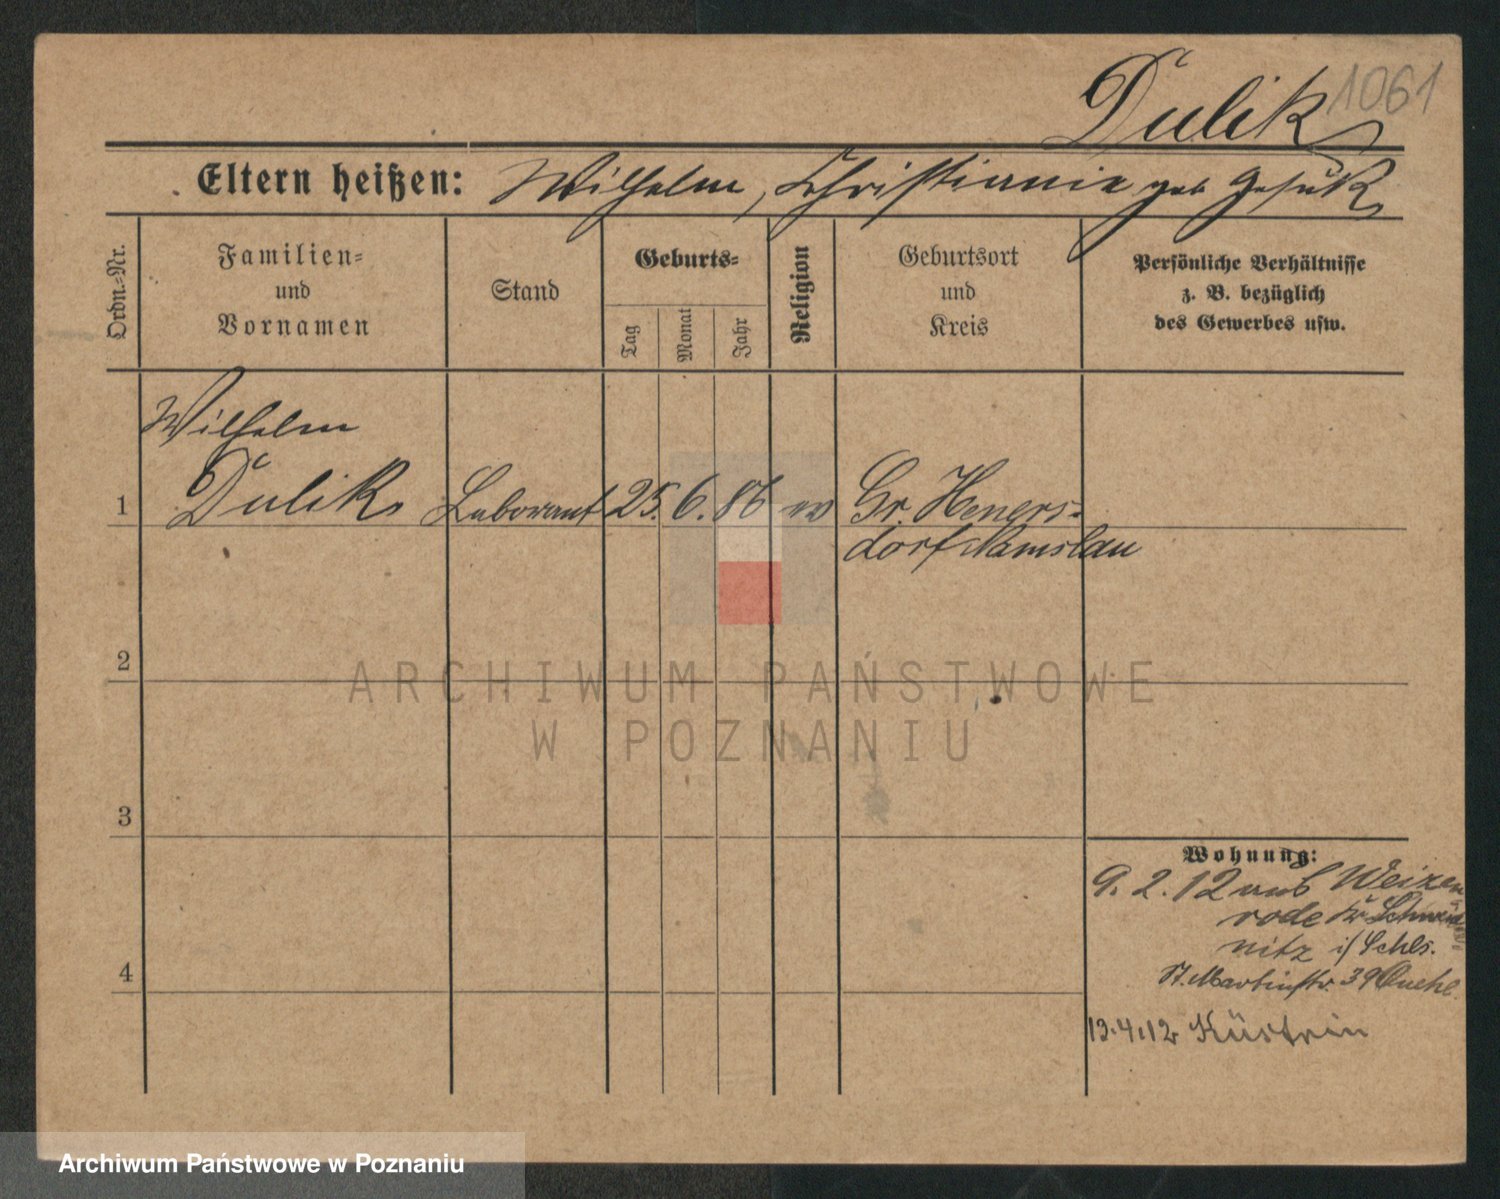 Dulik 1061
Eltern heißen: Wilhelm, Christiania geb
Ordn.=Nr.
Familien=
und
Vornamen
Stand
Geburts=
Tag
Monat
Jahr
Religion
Geburtsort
und
Kreis
Persönliche Verhältnisse
z. B. bezüglich
des Gewerbes usw.
Wilhelm
1 Dulik Laborant 25. 6. 86 ev Gr. Heners=
dorf Namslau
2
3
4
Wohnung:
9. 2. 12 aus Weizen
rode Kr Schweid
nitz i/ Schls.
St. Martinstr. 39
13.4.12 Küstrin
ARCHIWUM PAŃSTWOWE
W POZNANIU
Archiwum Państwowe w Poznaniu